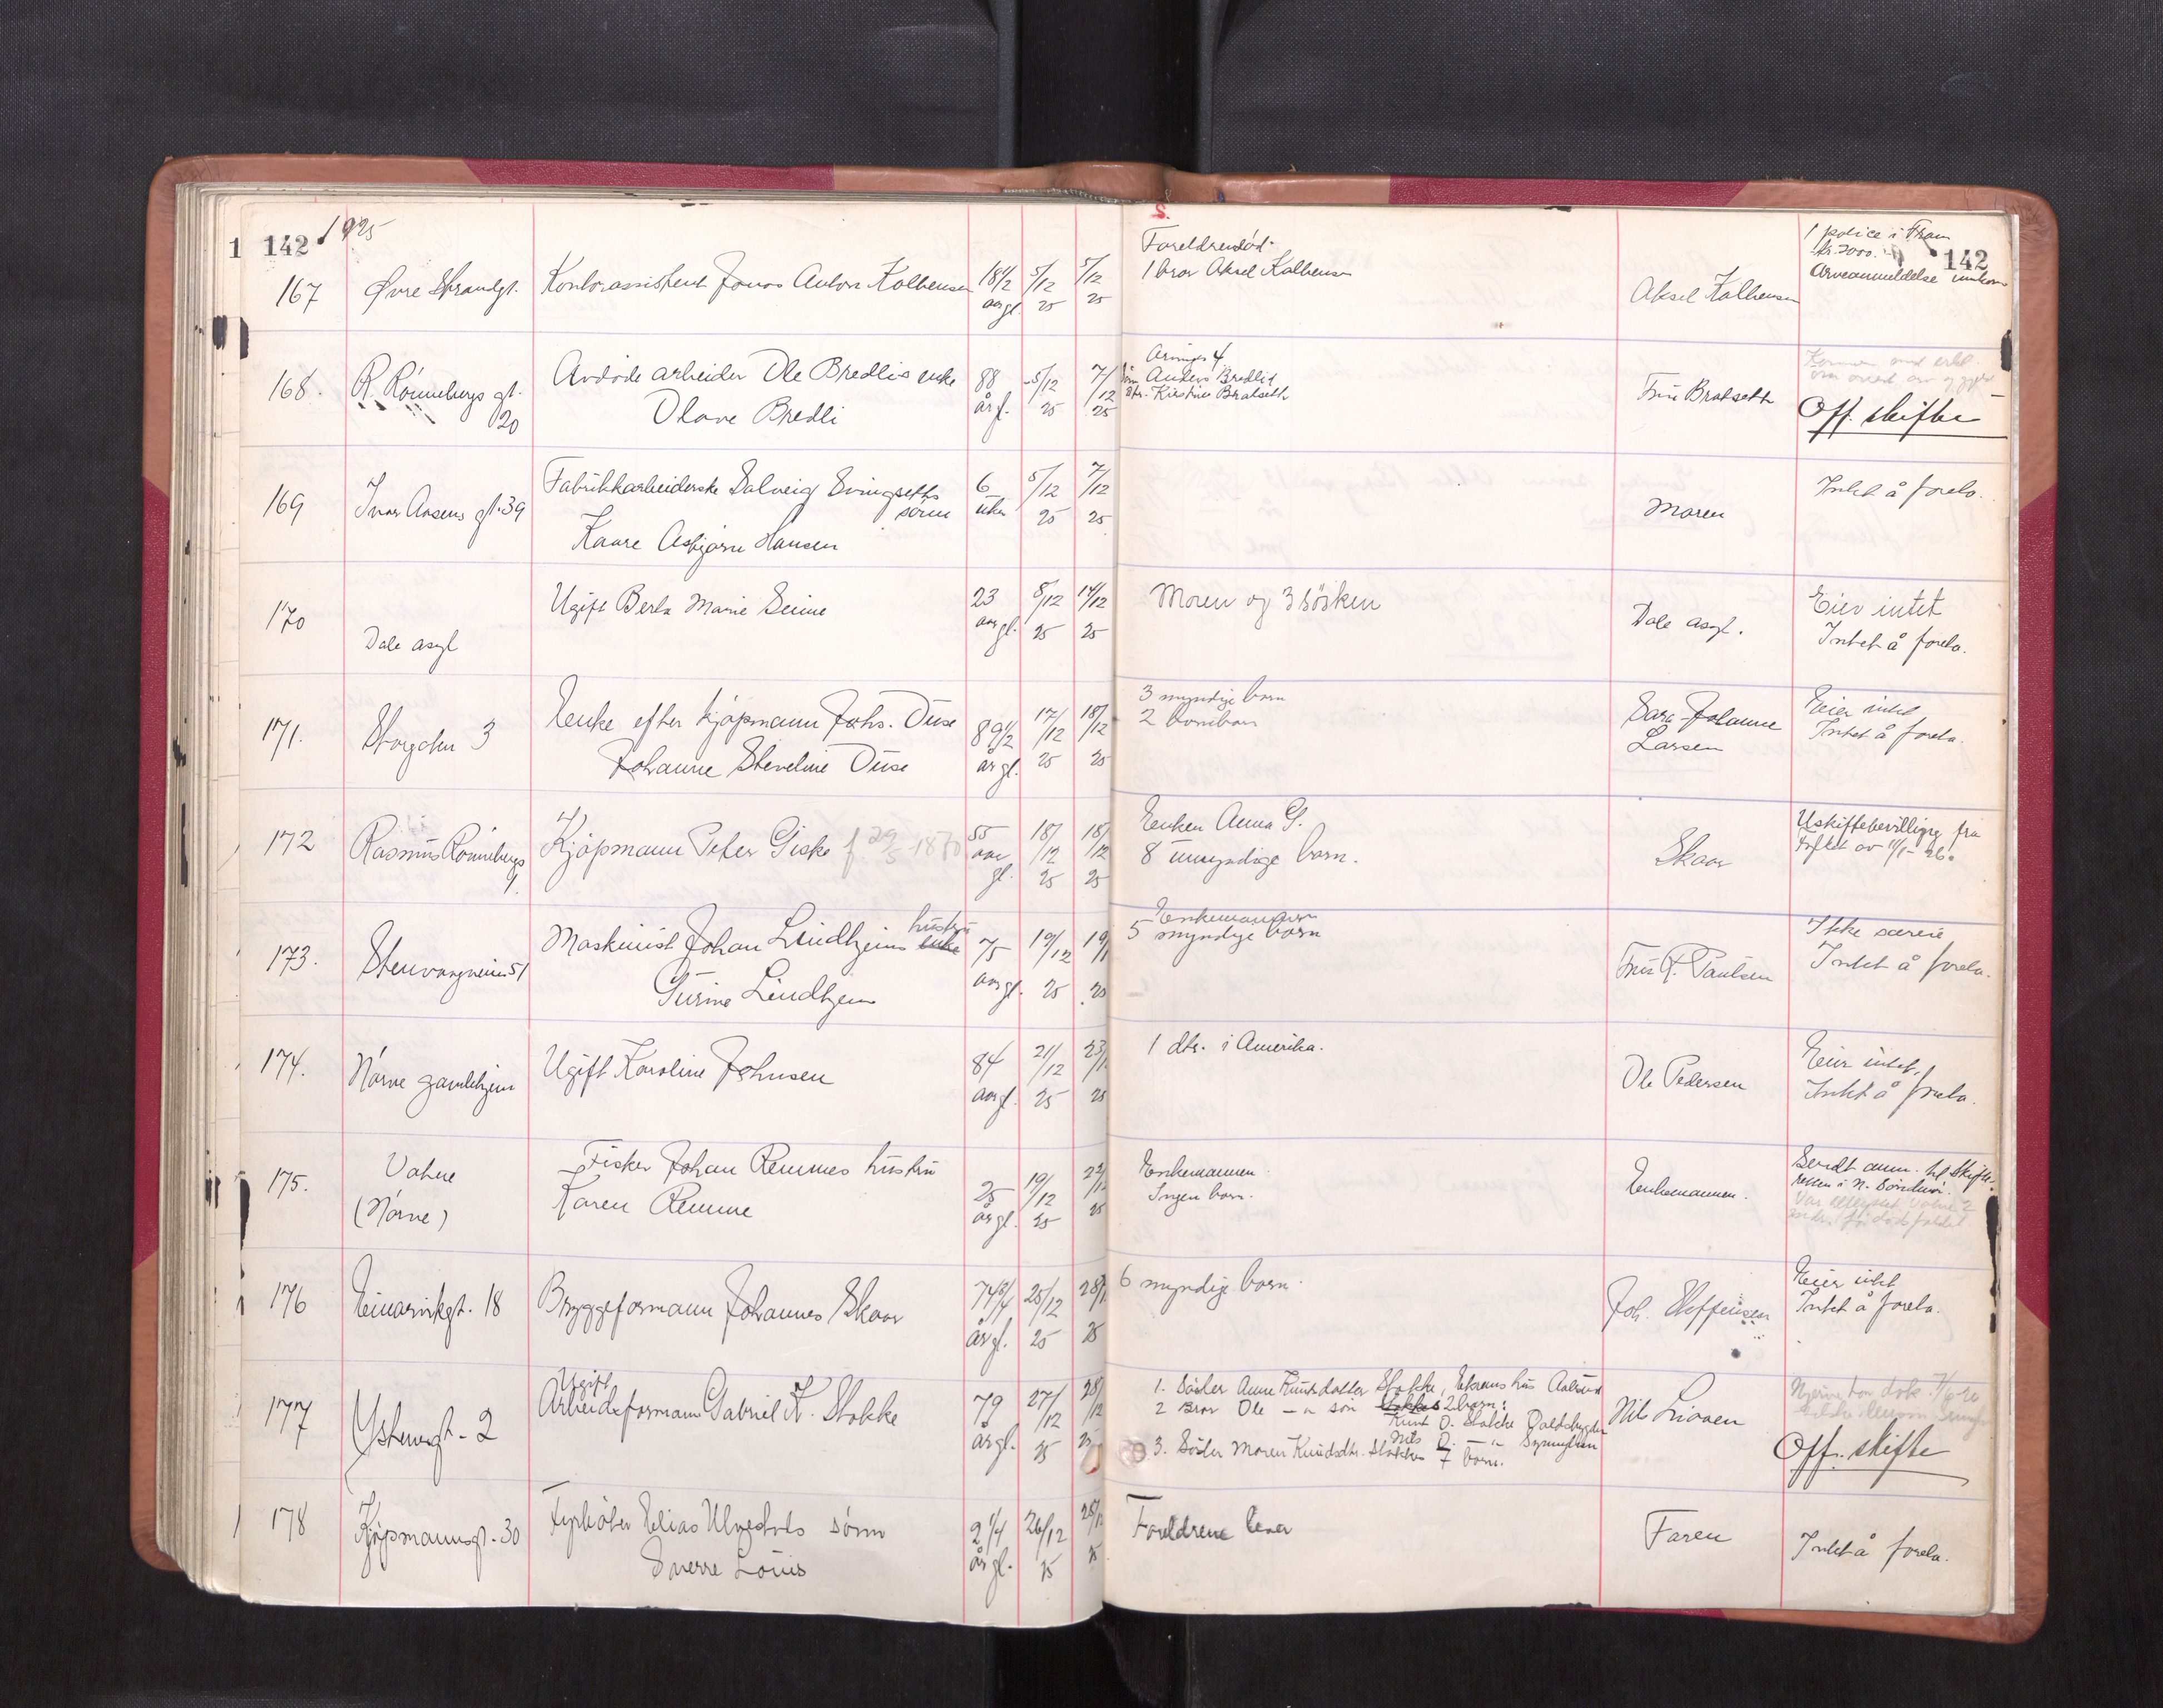 1 142 1925
S.
142
167 Øvre Strandgt. Kontorassistent Jonas Anton Kolbensen 18 1/2 aar gl. 5/12 25 5/12 25
Foreldrene død.
1 bror Aksel Kolbensen
Aksel Kolbensen
1 police i Fram
kr. 2000.
Arveanmeldelse innkom
168. R. Rønnebergs gt. 20
Avdøde arbeider Ole Bredlis enke
Olave Bredli
88 år gl. 5/12 25 7/12 25
Arvinger 4
Søn Anders Bredli
dtr. Kristine Bratseth
Fru Bratseth
Off. skifte
169 Ivar Aasens gt. 39
Fabrikkarbeiderske Solveig Svingseths
sønn
Kaare Asbjørn Hansen
6 uker 5/12 25 7/12 25
Moren
Intet å foreta.
170 Dale asyl
Ugift Berta Marie Seime
23 aar gl. 8/12 25 14/12 25
Moren og 3 søsken
Dale asyl.
Eier intet
Intet å foreta.
171. Storgaten 3
Enke efter kjøpmann Johs. Duse
Johanne Steveline Duse
89 1/2 år gl. 17/12 25 18/12 25
3 myndige barn
2 barnebarn
Sara Johanne
Larsen
Eier intet
Intet å foreta.
172 Rasmus Rønnebergs
Kjøpmann Peter Giske f. 29/5 1870
55 aar gl. 18/12 25 18/12 25
Enken Anna G.
8 umyndige barn.
Skaar
Uskiftebevilling fra
173. Stenvaagveien 51
Maskinist Johan Lindhjems enke hustru
Gurine Lindhjem
75 aar gl. 19/12 25 19/ 25
Enkemannen
5 myndige barn
Fru Paulsen
Ikke særeie
Intet å foreta.
174. Nørve gamlehjem
Ugift Karoline Johnsen
84 aar gl. 21/12 25 23/1 25
1 dtr. i Amerika.
Ole Pedersen
Eier intet,
Intet å foreta.
175. Vatne
(Nørve)
Fisker Johan Remmes hustru
Karen Remme
25 år gl. 19/12 25 22/1 25
Enkemannen.
Ingen barn.
Enkemannen.
Sendt anm. til Skifte-
retten i N. Søndmør.
176 Einarvikgt. 18
Bryggeformann Johannes Skaar
74 3/4 år gl. 25/12 25 28/1 25
6 myndige barn.
Joh. Steffensen
Eier intet
Intet å foreta.
177 Ystenesgt. 2
Ugift
Arbeidsformann Gabriel K. Stokke
79 år gl. 27/12 25 28/12 25
1. Søster Anne Knutsdatter Stokke,
2 Bror Ole —"— søn Stokkes 2 barn:
Knut O. Stokke
Nils O. —"—
3. Søster Maren Knudsdtr. Stokkes 7 barn.
Nils Liaaen
Off. skifte
178 Kjøpmannsgt. 30
Fyrbøter Elias Ulvestads sønn
Sverre Louis
2 1/4 år gl. 26/12 25 28/12 25
Foreldrene lever
Faren
Intet å foreta.